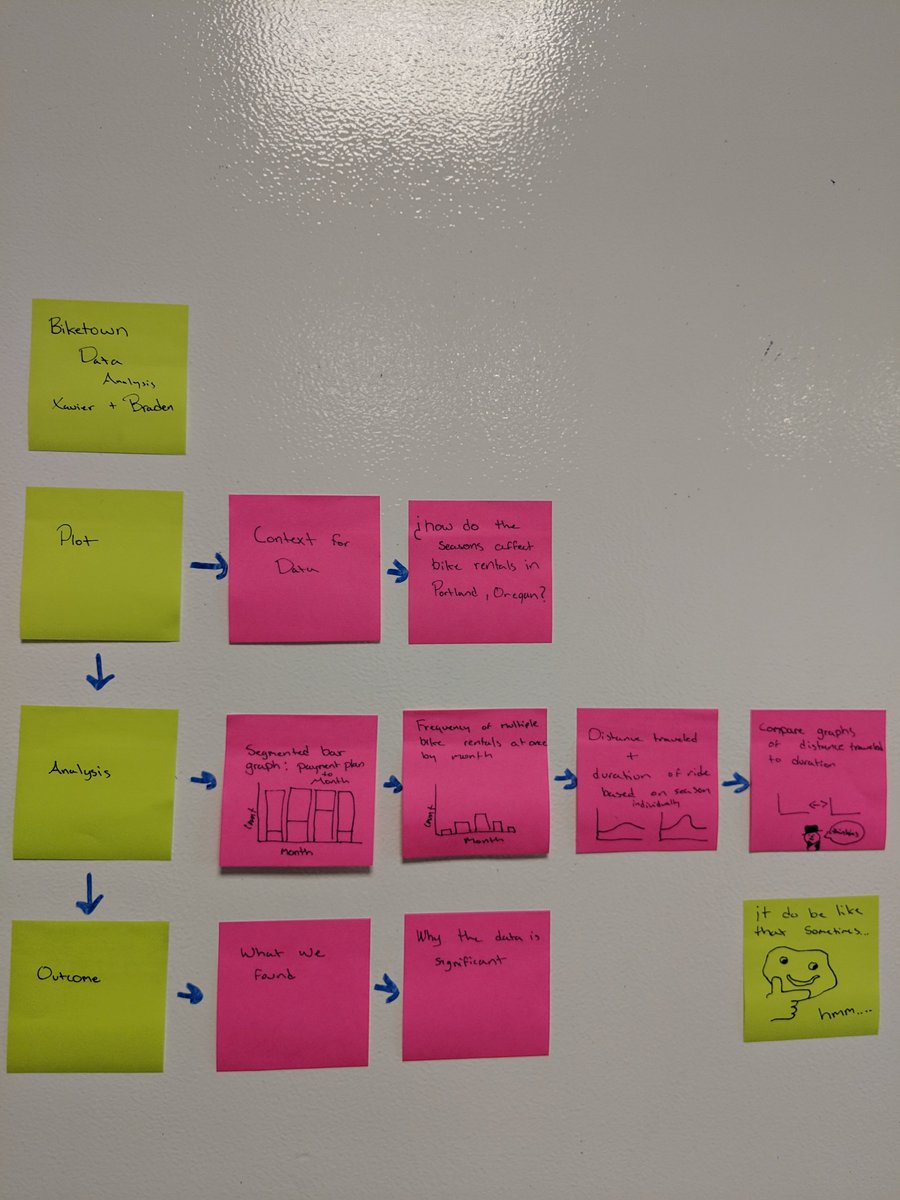 Biketown
Data
Analysis
Xavier + Braden
Plot
Context for
Data
¿how do the
seasons affect
bike rentals in
Portland, Oregan?
Analysis
Segmented bar
graph: payment plan
to
Month
Count
Month
Frequency of multiple
bike rentals at once
by month
Count
Month
Distance traveled
+
duration of ride
based on season
individually
Compare graphs
of distance traveled
to duration
Outcome
What we
found
Why the data is
significant
it do be like
that sometimes...
hmm....